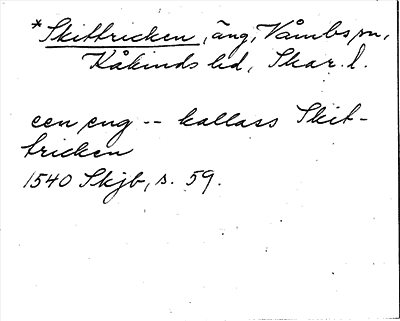 *Skittricken, äng, Våmbs sn,
Kåkinds hd, Skar. l.
een eng -- kallass Skit-
tricken
1540 Skjb, s. 59.